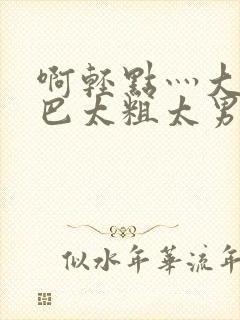 啊轻點灬大
巴太粗太男
似水年華流年